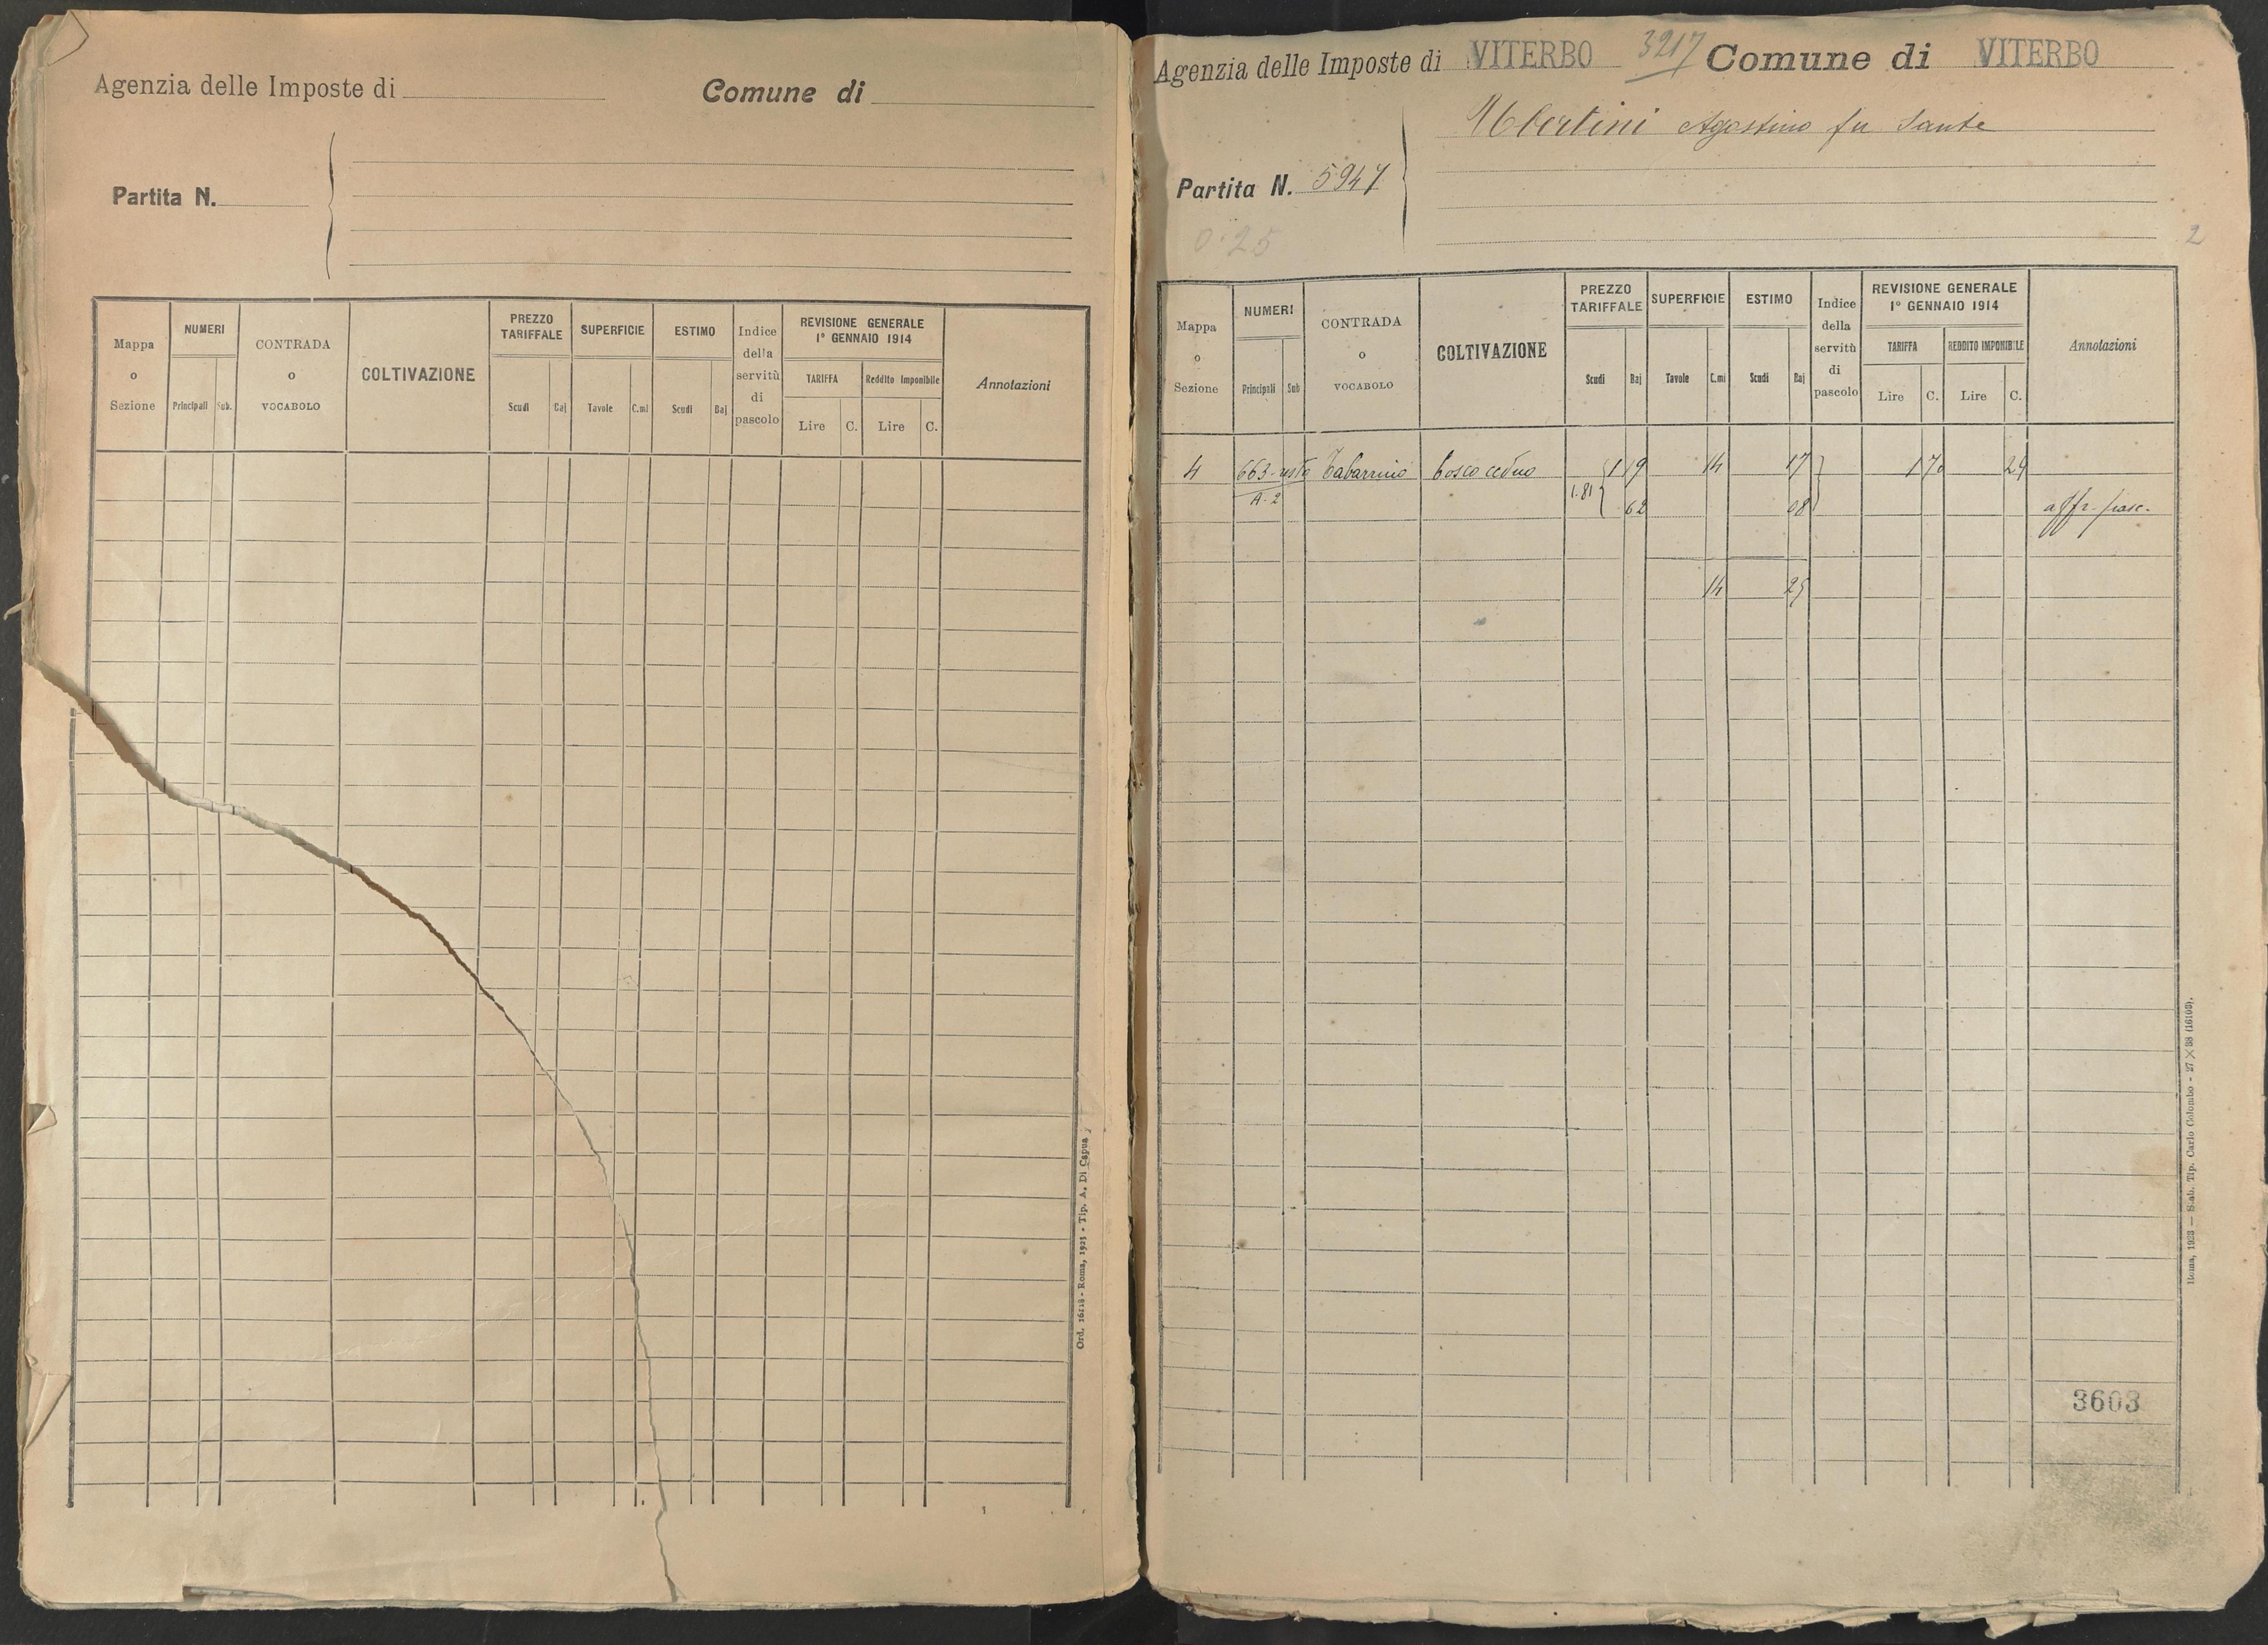 Agenzia delle Imposte di Comune di
Partita N.
Mappa o Sezione
NUMERI
Principali Sub.
CONTRADA o VOCABOLO
COLTIVAZIONE
PREZZO TARIFFALE
Scudi Baj
SUPERFICIE
Tavole C.mi
ESTIMO
Scudi Baj
Indice della servitù di pascolo
REVISIONE GENERALE
1° GENNAIO 1914
TARIFFA Reddito Imponibile
Lire C. Lire C.
Annotazioni
Ord. 16218 - Roma, 1925 - Tip. A. Di Capua
Agenzia delle Imposte di VITERBO 3217 Comune di VITERBO
Ubertini Agostino fu Sante
Partita N. 5947
0.25
2
Mappa o Sezione
NUMERI
Principali Sub
CONTRADA o VOCABOLO
COLTIVAZIONE
PREZZO TARIFFALE
Scudi Baj
SUPERFICIE
Tavole C.mi
ESTIMO
Scudi Baj
Indice della servitù di pascolo
REVISIONE GENERALE
1° GENNAIO 1914
TARIFFA REDDITO IMPONIBILE
Lire C. Lire C.
Annotazioni
4 663 resto Tabarrino bosco ceduo 1 19 14 17 1 70 24
A. 2 1.81 62 08 affr. pasc.
14 25
3603
Roma, 1923 — Stab. Tip. Carlo Colombo - 27 × 38 (16103).